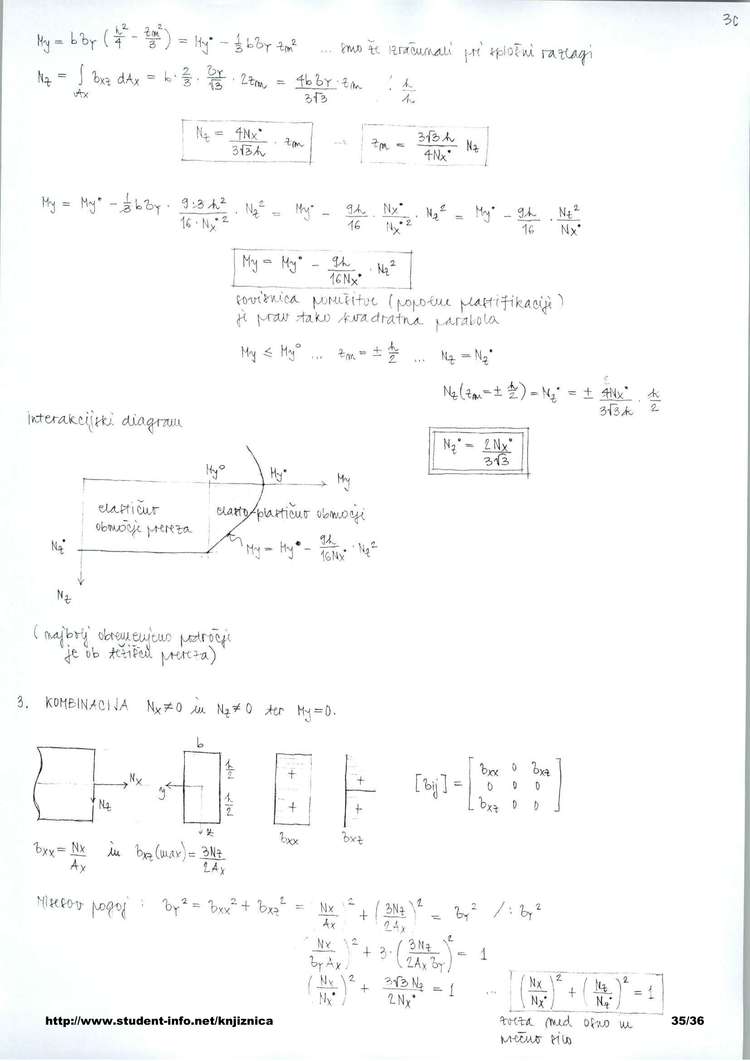 3c
My = bσY (h²/4 - zm²/3) = My• - 1/3 bσY zm² ... smo že izračunali pri splošni razlagi
Nz = ∫Ax σxz dAx = b · 2/3 · σY/√3 · 2zm = 4bσY/3√3 · zm : h/h
Nz = 4Nx•/3√3h · zm ... zm = 3√3h/4Nx• Nz
My = My• - 1/3 bσY · 9·3h²/16·Nx•² · Nz² = My• - 9h/16 · Nx•/Nx•² · Nz² = My• - 9h/16 · Nz²/Nx•
My = My• - 9h/16Nx• · Nz²
sovisnica porušitve (popolne plastifikacije)
je prav tako kvadratna parabola
My ≤ My° ... zm = ± h/2 ... Nz = Nz•
Nz(zm = ± h/2) = Nz• = ± 4Nx•/3√3h · h/2
interakcijski diagram
Nz• = 2Nx•/3√3
My° My• My
elastično elasto-plastično območje
območje prereza
Nz• My = My• - 9h/16Nx• · Nz²
Nz
(najbolj obremenjeno področje
je ob težišču prereza)
3. KOMBINACIJA Nx≠0 in Nz≠0 ter My=0.
b
Nx y h/2 + +
Nz z h/2 + +
σxx σxz
[σij] = [σxx 0 σxz
0 0 0
σxz 0 0]
σxx = Nx/Ax in σxz(max) = 3Nz/2Ax
Misesov pogoj : σY² = σxx² + σxz² = (Nx/Ax)² + (3Nz/2Ax)² = σY² /: σY²
(Nx/σYAx)² + 3·(3Nz/2AxσY)² = 1
(Nx/Nx•)² + 3√3Nz/2Nx• = 1 ... (Nx/Nx•)² + (Nz/Nz•)² = 1
http://www.student-info.net/knjiznica 35/36
zveza med osno in
prečno silo